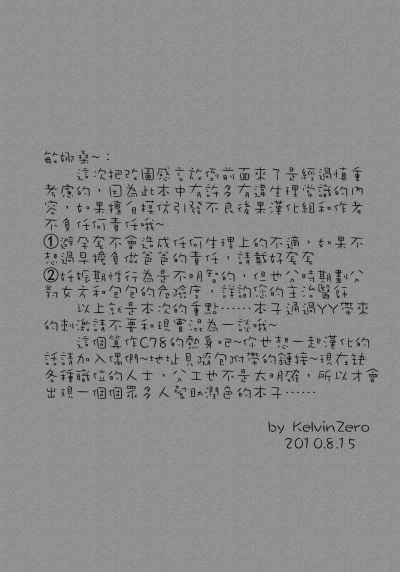 敏娜桑~：
這次把改圖感言放倒前面來了是經過慎重
考慮的，因為此本中有許多有違生理常識的內
容，如果擅自模仿引發不良後果漢化組和作者
不負任何責任哦~
①避孕套不會造成任何生理上的不適，如果不
想過早擔負做爸爸的責任，請戴好套套
②妊娠期性行為是不明智的，但也分時期劃分
對女方和包包的危險度，詳詢您的主治醫師
以上就是本次的重點……本子通過YY帶來
的刺激請不要和現實混為一談哦~
這個算作C78的熱身吧~你也想一起漢化的
話請加入偶們~地址見隨包附帶的鏈接~現在缺
各種職位的人士，分工也不是太明確，所以才會
出現一個個眾多人幫助潤色的本子……
by KelvinZero
2010.8.15